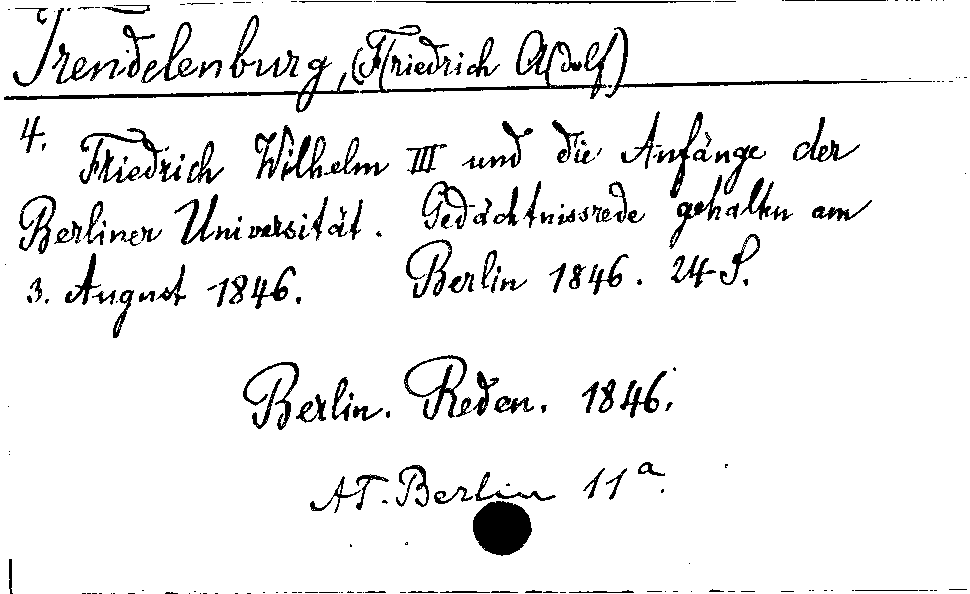 Trendelenburg, (F)riedrich A(dolf)
4. Friedrich Wilhelm III und die Anfänge der
Berliner Universität. Gedächtnissrede gehalten am
3. August 1846. Berlin 1846. 24 S.
Berlin. Reden. 1846.
AT. Berlin 11a.